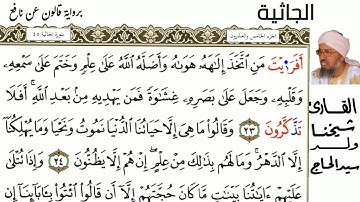 الجاثية
برواية قالون عن نافع
الجزء الخامس والعشرون
سورة الجاثية 45
أَفَرَٰيْتَ مَنِ اتَّخَذَ إِلَٰهَهُۥ هَوَىٰهُ وَأَضَلَّهُ اللَّهُ عَلَىٰ عِلْمٍ وَخَتَمَ عَلَىٰ سَمْعِهِۦ
وَقَلْبِهِۦ وَجَعَلَ عَلَىٰ بَصَرِهِۦ غِشَٰوَةً فَمَنْ يَهْدِيهِ مِنۢ بَعْدِ اللَّهِ أَفَلَا
تَذَّكَّرُونَ ٢٣ وَقَالُوا مَا هِيَ إِلَّا حَيَاتُنَا الدُّنْيَا نَمُوتُ وَنَحْيَا وَمَا يُهْلِكُنَا
إِلَّا الدَّهْرُ وَمَا لَهُم بِذَٰلِكَ مِنْ عِلْمٍ إِنْ هُمْ إِلَّا يَظُنُّونَ ٢٤ وَإِذَا تُتْلَىٰ
عَلَيْهِمْ ءَايَٰتُنَا بَيِّنَٰتٍ مَّا كَانَ حُجَّتَهُمْ إِلَّا أَن قَالُوا ائْتُوا بِـَٔابَآئِنَا إِن
القارئ
شيخنا
ولد
سيد الحاج